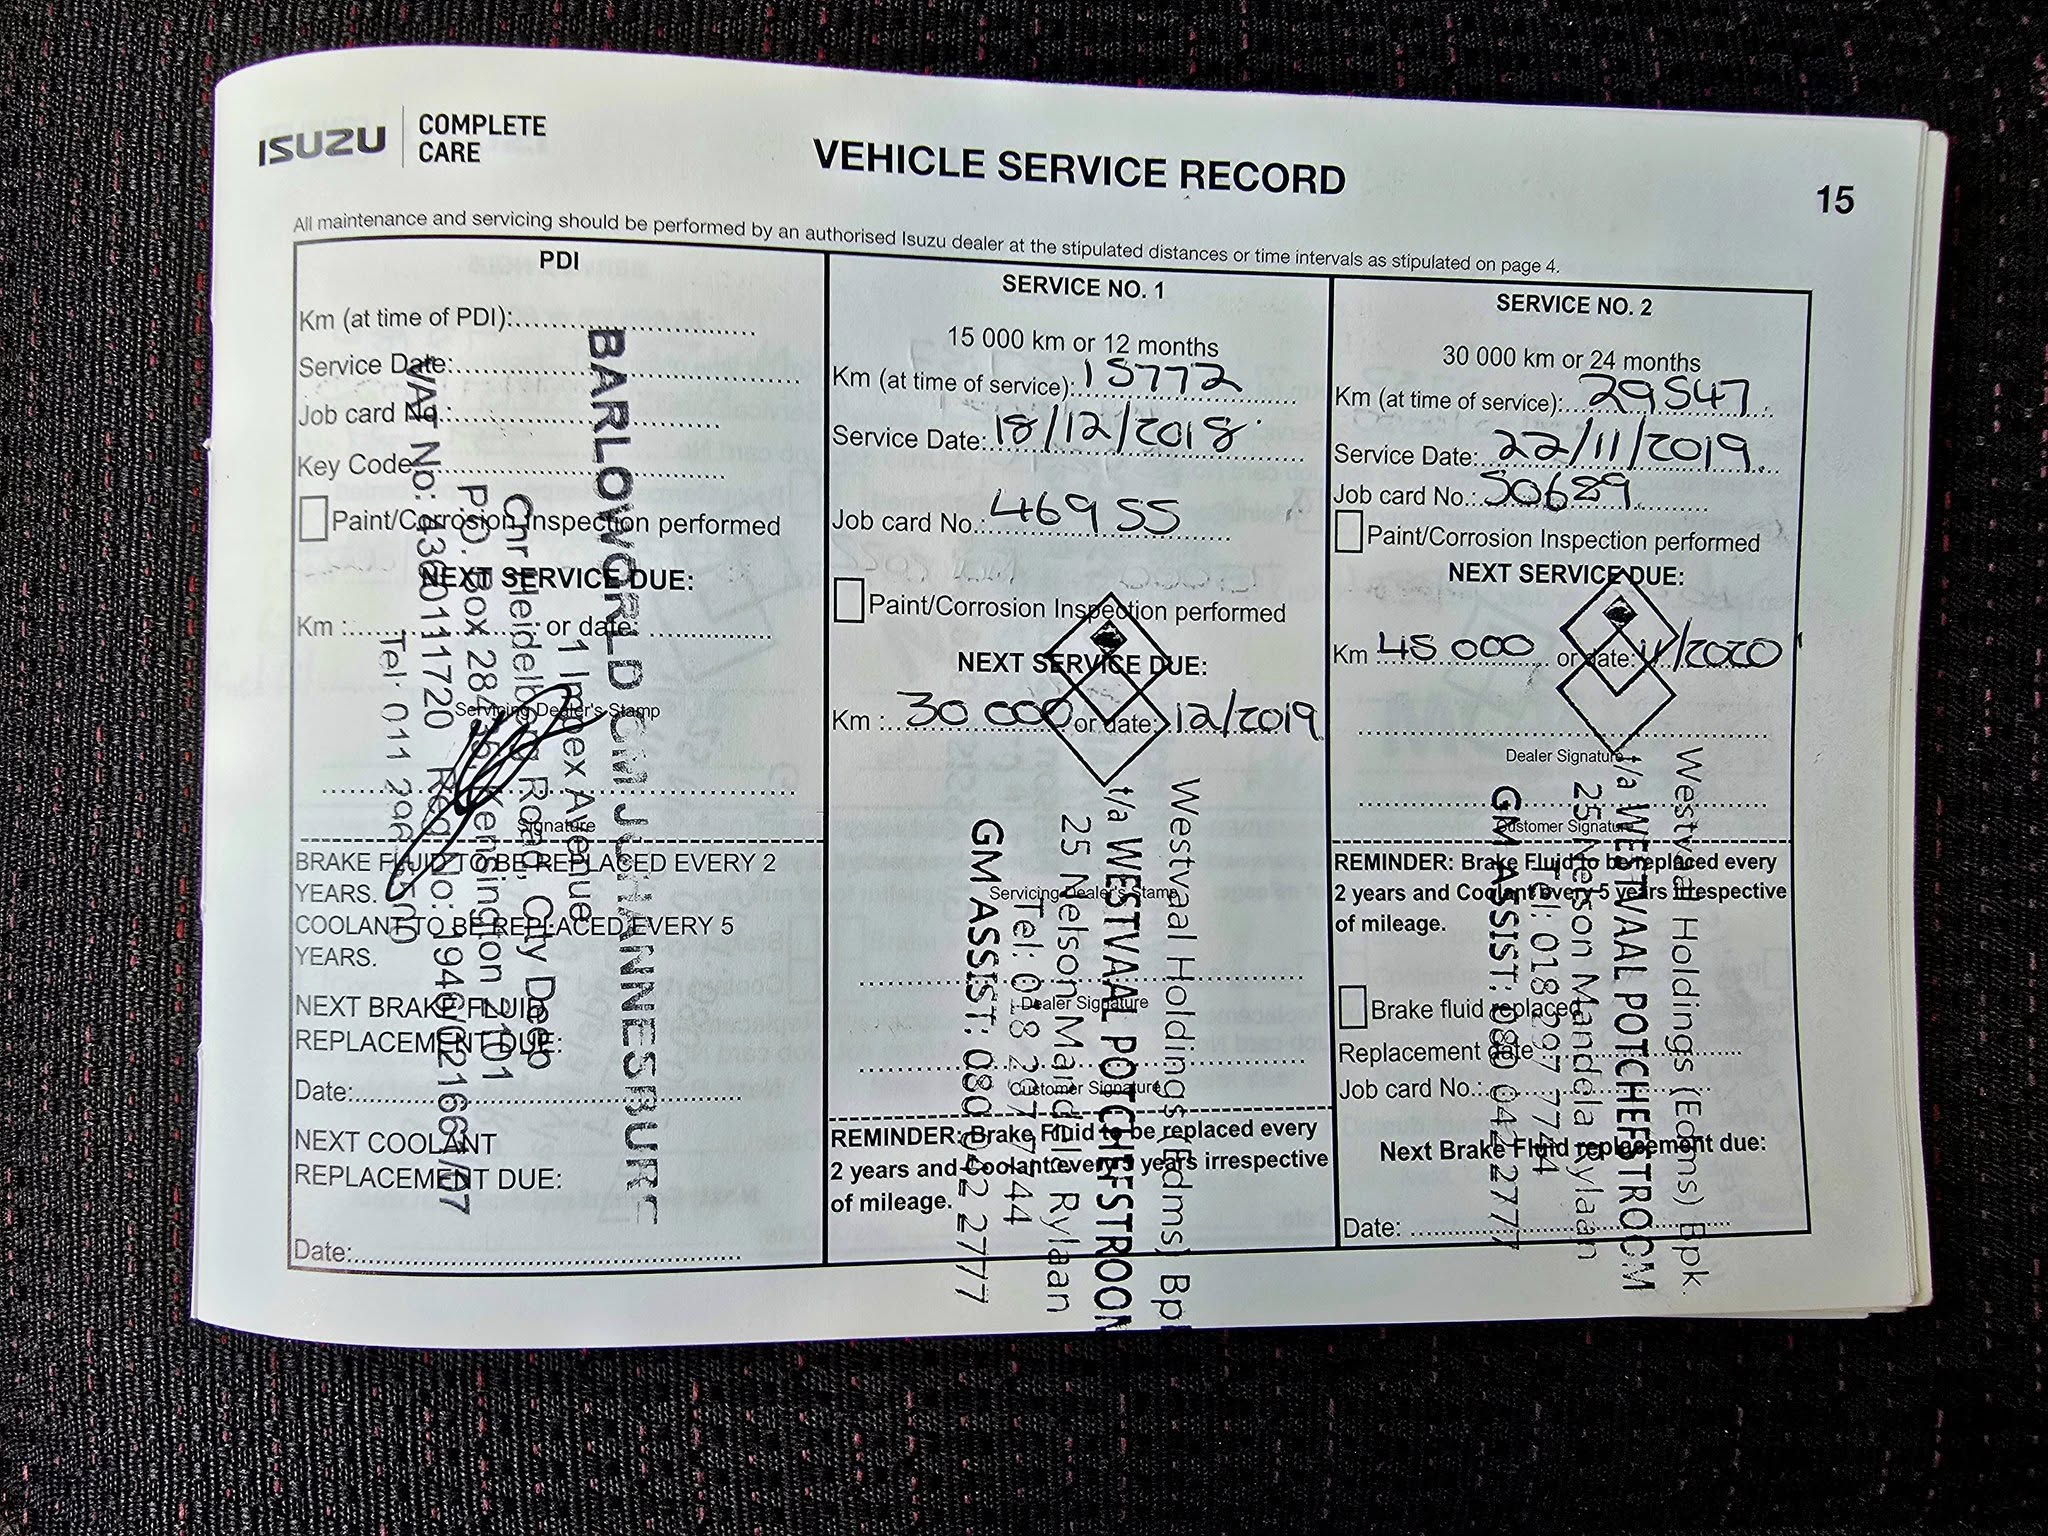 ISUZU
COMPLETE
CARE
VEHICLE SERVICE RECORD
15
All maintenance and servicing should be performed by an authorised Isuzu dealer at the stipulated distances or time intervals as stipulated on page 4.
PDI
Km (at time of PDI):
Service Date:
Job card No.:
Key Code:
Paint/Corrosion Inspection performed
NEXT SERVICE DUE:
Km : or date:
Servicing Dealer's Stamp
Signature
BRAKE FLUID TO BE REPLACED EVERY 2
YEARS.
COOLANT TO BE REPLACED EVERY 5
YEARS.
NEXT BRAKE FLUID
REPLACEMENT DUE:
Date:
NEXT COOLANT
REPLACEMENT DUE:
Date:
BARLOWORLD GM JOHANNESBURG
1 Impex Avenue
Cnr Heidelberg Road, City Deep
P.O. Box 28436 Kensington 2101
VAT No: 4360111720 Reg No: 1946/021661/07
Tel: 011 296
SERVICE NO. 1
15 000 km or 12 months
Km (at time of service): 15772
Service Date: 18/12/2018
Job card No.: 46955
Paint/Corrosion Inspection performed
NEXT SERVICE DUE:
Km : 30 000 or date: 12/2019
Servicing Dealer's Stamp
Dealer Signature
Customer Signature
REMINDER: Brake Fluid to be replaced every
2 years and Coolant every 5 years irrespective
of mileage.
Westvaal Holdings (Edms) Bp
t/a WESTVAAL POTCHEFSTROOM
25 Nelson Mandela Rylaan
Tel: 018 297 7744
GM ASSIST: 080 042 2777
SERVICE NO. 2
30 000 km or 24 months
Km (at time of service): 29547
Service Date: 22/11/2019
Job card No.: 50689
Paint/Corrosion Inspection performed
NEXT SERVICE DUE:
Km 45 000 or date: 11/2020
Dealer Signature
Customer Signature
REMINDER: Brake Fluid to be replaced every
2 years and Coolant every 5 years irrespective
of mileage.
Brake fluid replaced
Replacement date
Job card No.:
Next Brake Fluid replacement due:
Date:
Westvaal Holdings (Edms) Bpk.
t/a WESTVAAL POTCHEFSTROOM
25 Nelson Mandela Rylaan
Tel: 018 297 7744
GM ASSIST: 080 042 2777